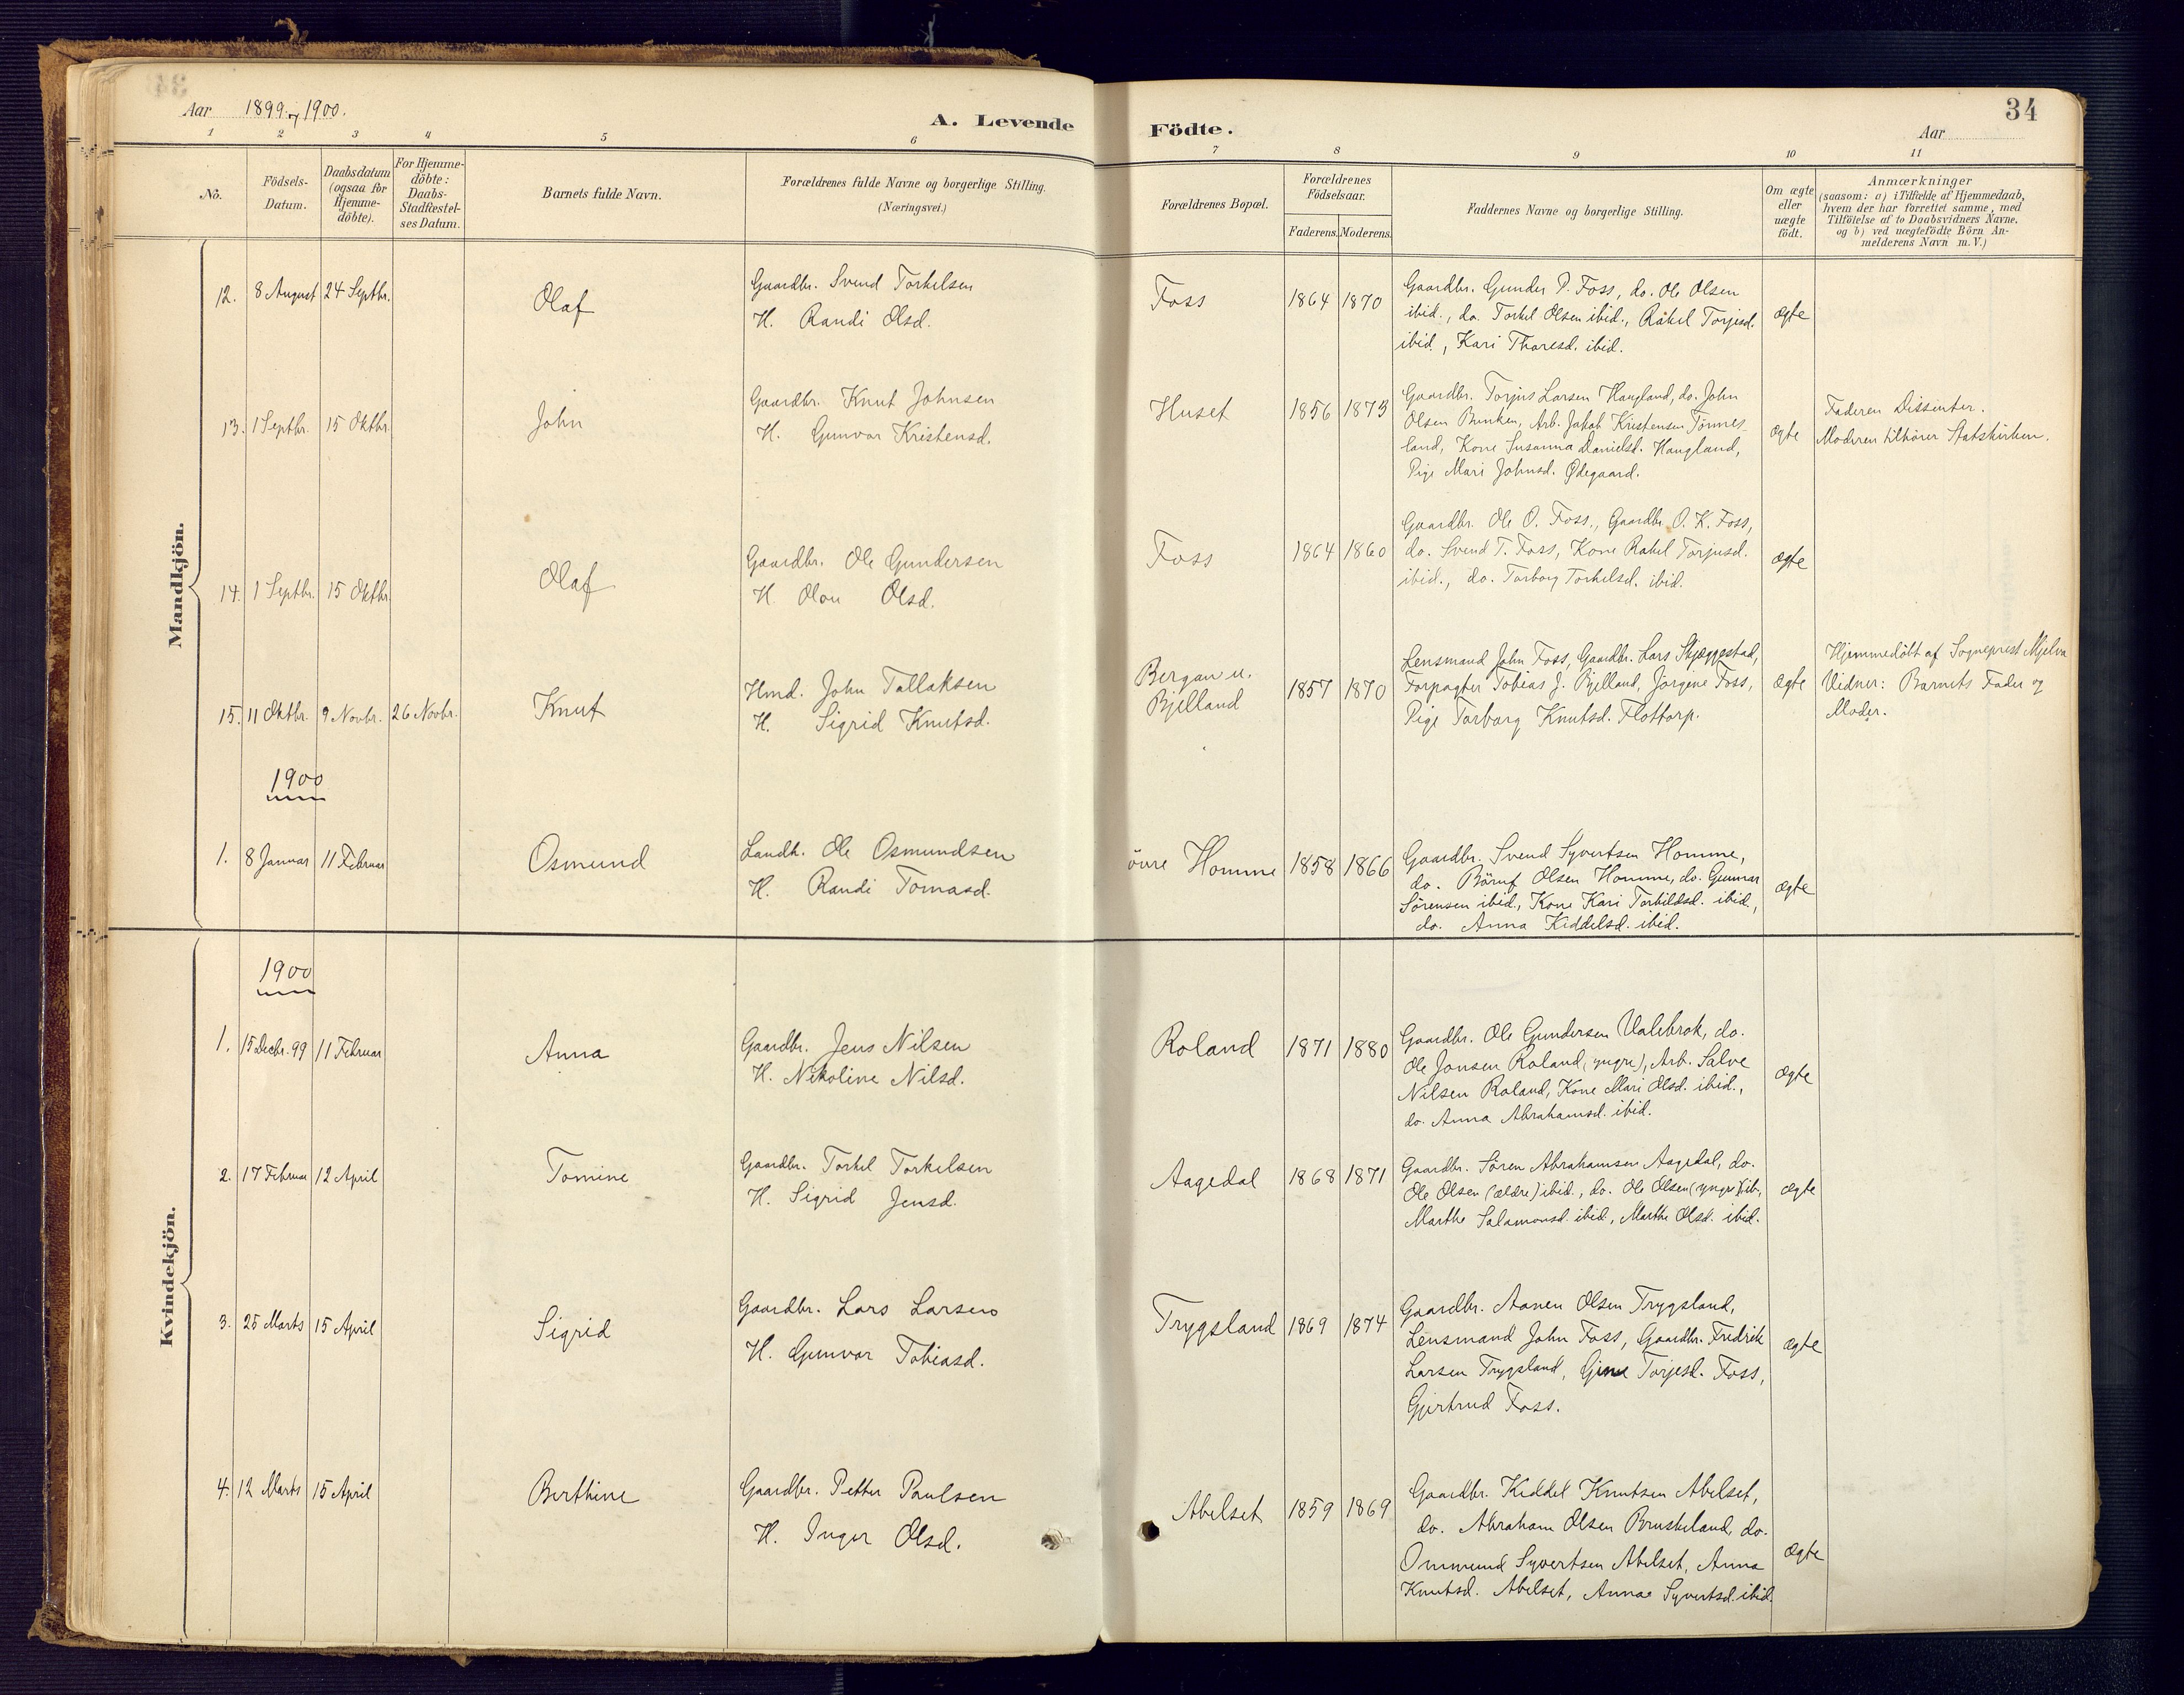 Aar 1899, 1900.
A. Levende Födte.
Aar
34
1 2 3 4 5 6 7 8 9 10 11
No.
Födsels-Datum.
Daabsdatum (ogsaa for Hjemme-döbte).
For Hjemme-döbte: Daabs-Stadfæstel-ses Datum.
Barnets fulde Navn.
Forældrenes fulde Navne og borgerlige Stilling. (Næringsvei.)
Forældrenes Bopæl.
Forældrenes Födselsaar.
Faderens. Moderens.
Faddernes Navne og borgerlige Stilling.
Om ægte eller uægte födt.
Anmærkninger (saasom: a) i Tilfælde af Hjemmedaab, hvem der har forrettet samme, med Tilföielse af to Daabsvidners Navne, og b) ved uægtefödte Börn An-melderens Navn m. V.)
Mandkjön.
12. 8 August 24 Septbr. Olaf
Gaardbr. Svend Torkelsen
H. Randi Olsd.
Foss 1864 1870
Gaardbr. Gunder P. Foss, do. Ole Olsen
ibid., do. Torkel Olsen ibid., Råkel Torjesd.
ibid., Kari Tharesd. ibid.
ægte
13. 1 Septbr. 15 Oktbr. John
Gaardbr. Knut Johnsen
H. Gunvor Kristensd.
Huset 1856 1873
Gaardbr. Torjus Larsen Haugland, do. John
Olsen Brnken, Arb. Jakob Kristensen Tönnes-
land, Kone Susanna Danielsd. Haugland,
Pige Mari Johnsd. Ødegaard.
ægte
Faderen Dissenter.
Moderen tilhörer Statskirken.
14. 1 Septbr. 15 Oktbr. Olaf
Gaardbr. Ole Gundersen
H. Olou Olsd.
Foss 1864 1860
Gaardbr. Ole O. Foss., Gaardbr. O. K. Foss,
do. Svend T. Foss, Kone Rakel Torjusd.
ibid., do. Torborg Torkelsd. ibid.
ægte
15. 11 Oktbr. 9 Novbr. 26 Novbr. Knut
Hmd. John Tallaksen
H. Sigrid Knutsd.
Bergan u.
Bjelland
1857 1870
Lensmand John Foss, Gaardbr. Lars Skjæggestad,
Forpagter Tobias J. Bjelland, Jörgene Foss,
Pige Torborg Knutsd. Flottorp.
ægte
Hjemmedöbt af Sogneprest Mjelva
Vidner: Barnets Fader og
Moder.
1900
1. 8 Januar 11 Februar Osmund
Landh. Ole Osmundsen
H. Randi Tomasd.
övre Homme 1858 1866
Gaardbr. Svend Syvertsen Homme,
do. Böruf Olsen Homme, do. Gunnar
Sörensen ibid., Kone Kari Torkildsd. ibid.,
do. Anna Kiddelsd. ibid.
ægte
Kvindekjön.
1900
1. 15 Decbr. 99 11 Februar Anna
Gaardbr. Jens Nilsen
H. Nikoline Nilsd.
Roland 1871 1880
Gaardbr. Ole Gundersen Valebrok, do.
Ole Jonsen Roland, (yngre), Arb. Salve
Nilsen Roland, Kone Mari Olsd. ibid.,
do. Anna Abrahamsd. ibid.
ægte
2. 17 Februar 12 April Tomine
Gaardbr. Torkel Torkelsen
H. Sigrid Jensd.
Aagedal 1868 1871
Gaardbr. Sören Abrahamsen Aagedal, do.
Ole Olsen (ældre) ibid., do. Ole Olsen (yngre) ib.,
Marthe Salamonsd. ibid., Marthe Olsd. ibid.
ægte
3. 25 Marts 15 April Sigrid
Gaardbr. Lars Larsen
H. Gunvor Tobiasd.
Trygsland 1869 1874
Gaardbr. Aanen Olsen Trygsland,
Lensmand John Foss, Gaardbr. Fredrik
Larsen Trygsland, Gjine Torjesd. Foss,
Gjertrud Foss.
ægte
4. 12 Marts 15 April Berthine
Gaardbr. Petter Paulsen
H. Inger Olsd.
Abelset 1859 1869
Gaardbr. Kiddel Knutsen Abelset,
do. Abraham Olsen Bruskeland, do.
Ommund Syvertsen Abelset, Anna
Knutsd. Abelset, Anna Syvertsd. ibid.
ægte